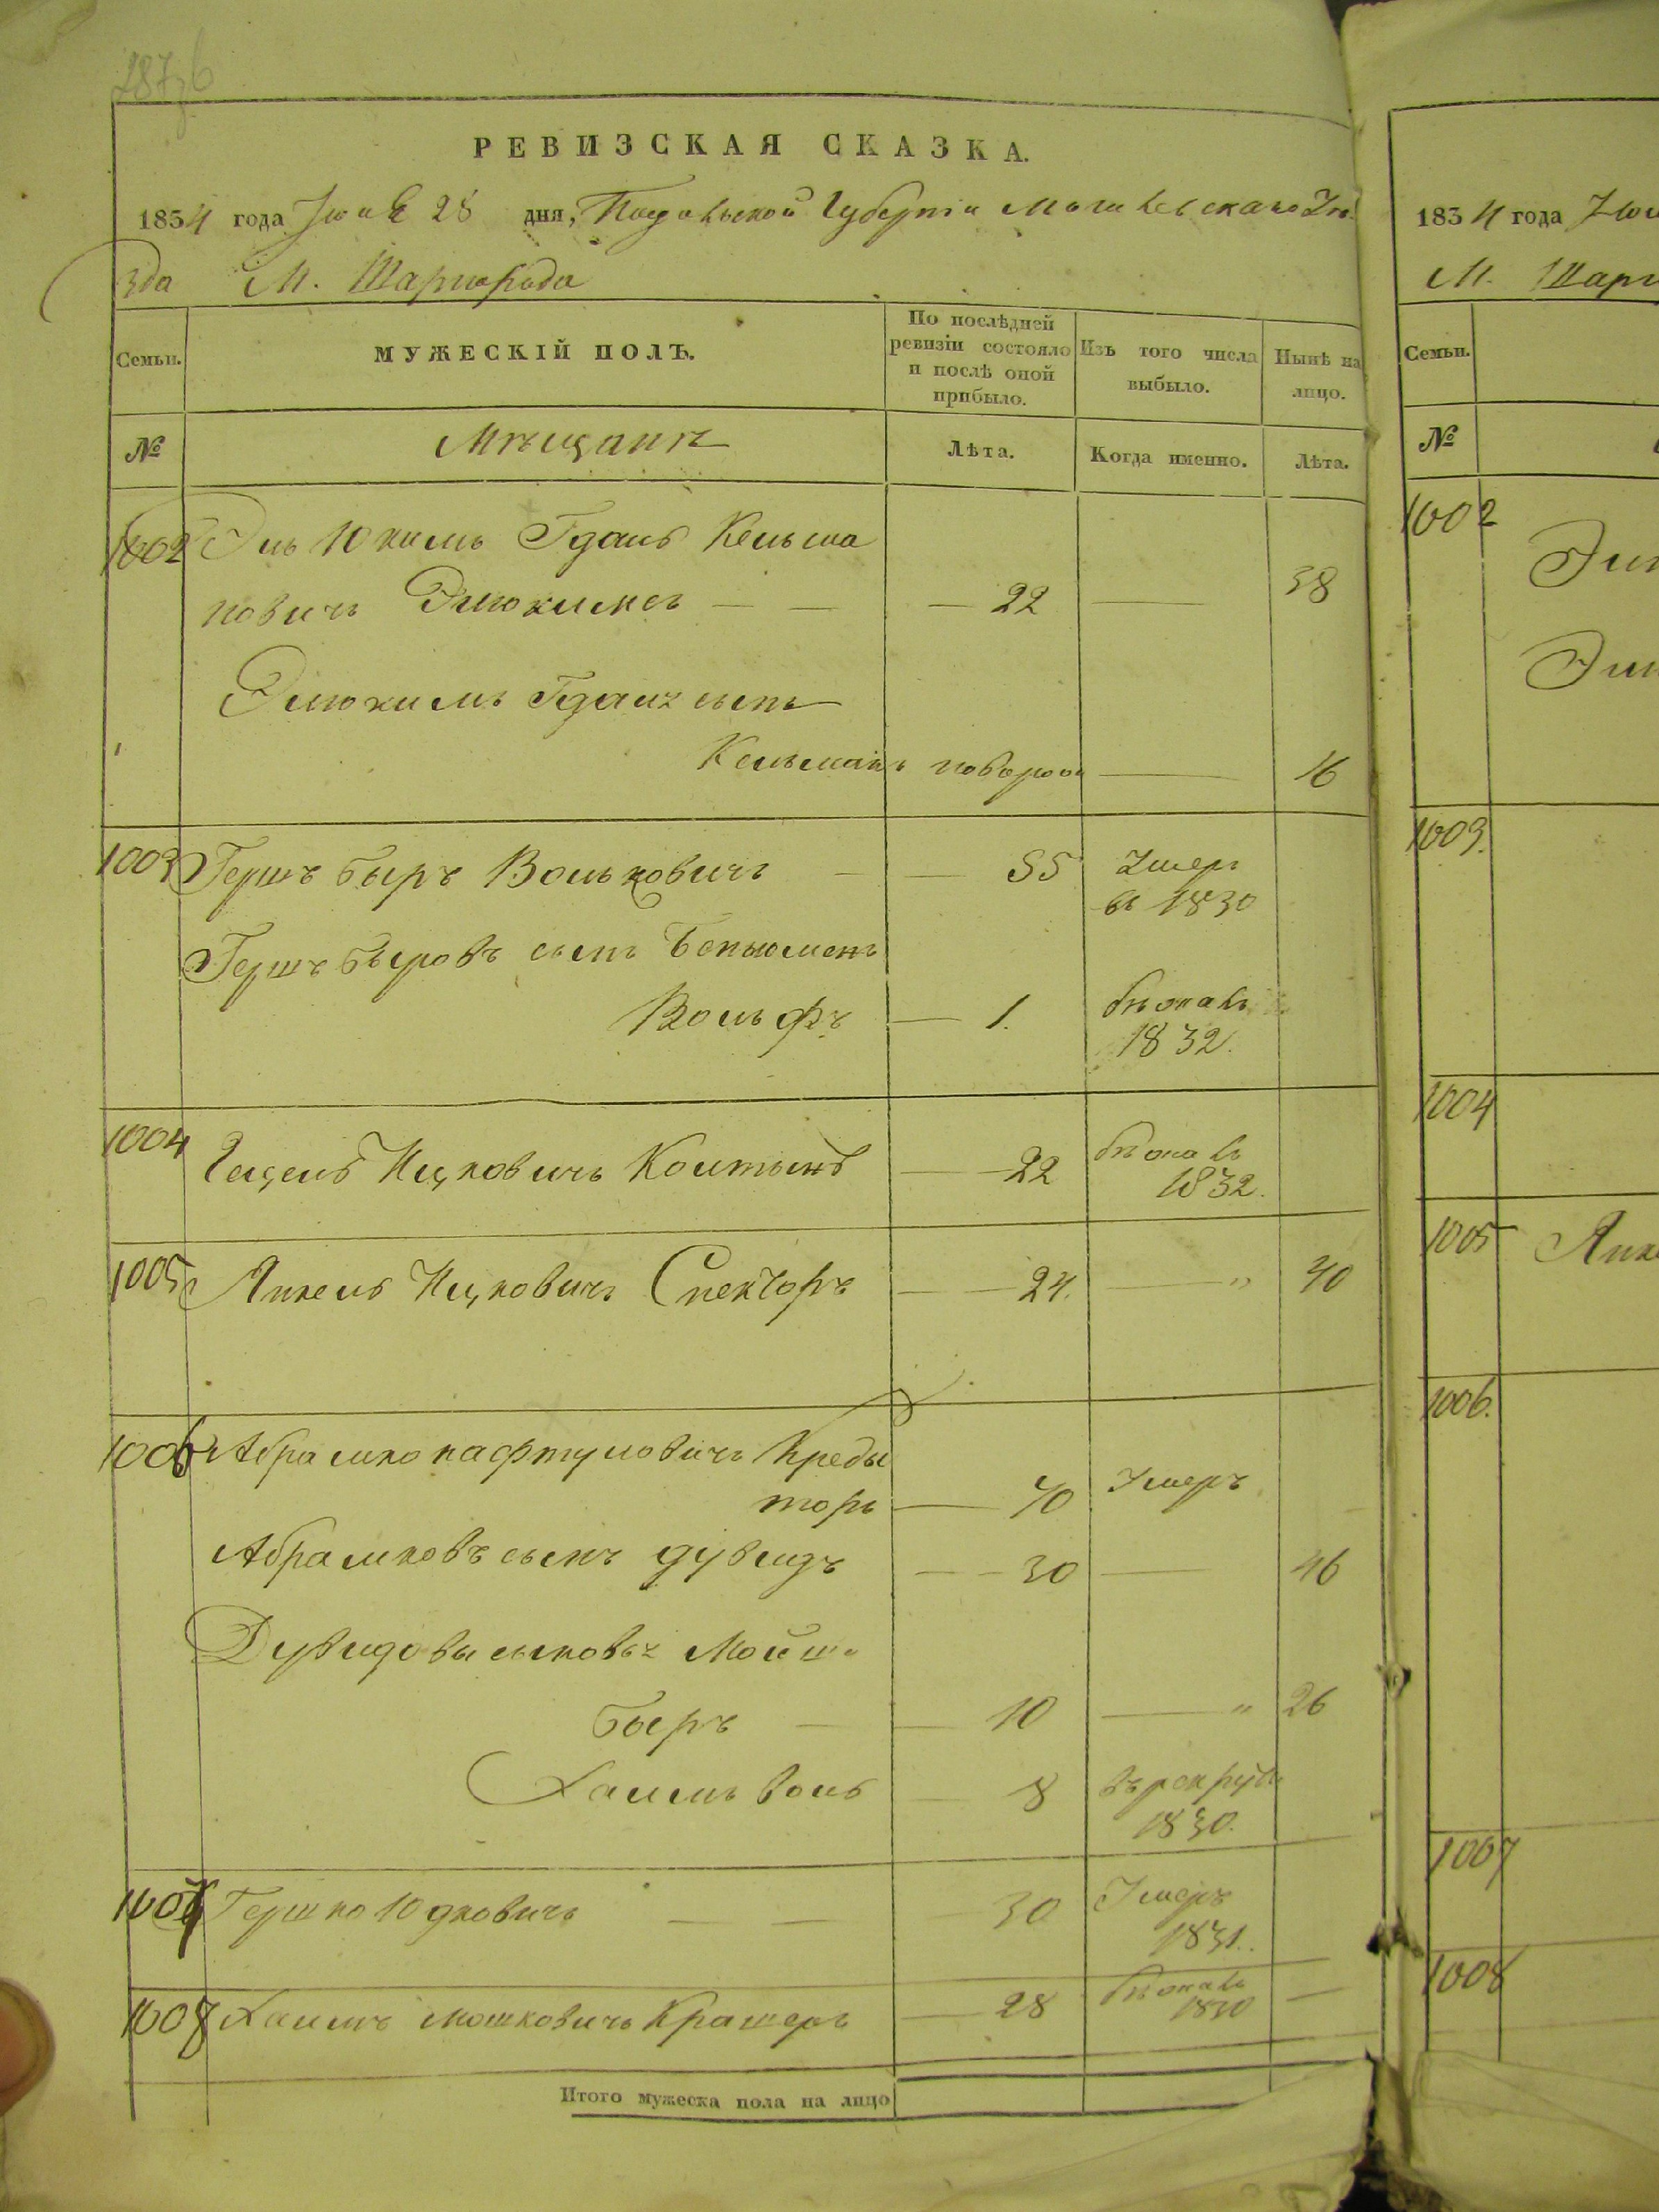 РЕВИЗСКАЯ СКАЗКА.
1834 года Июня 28 дня, Подольской Губерніи Могилевскаго Уѣ
зда М. Шаргорода
Семьи. МУЖЕСКІЙ ПОЛЪ. По послѣдней ревизіи состояло и послѣ оной прибыло. Изъ того числа выбыло. Нынѣ на лицо.
№ Мѣщанѣ Лѣта. Когда именно. Лѣта.
1002 Эль Юкимъ Гдаль Кельма
новичъ Элюкимъ — — — 22 — 38
Элюкимъ Гдалъ сынъ
Кельманъ новорож — 16
1003 Гершъ Беръ Вольковичъ — — 55 Умеръ
въ 1830
Гершъ Беровъ сынъ Беньюмень
Вольфъ — 1. бѣжалъ
1832.
1004 Гецель Ицковичъ Колтынъ — 22 бѣжалъ
1832.
1005 Янкель Ицковичъ Спекторъ — 24. — " 40
1006 Абрамко нафтуловичъ Креды
торъ — 70 Умеръ
Абрамковъ сынъ дувидъ — 30 — 46
Дувидовы сыновья Мойше
Беръ — — 10 — " 26
Хаимъ Воль — 8 въ рекруты
1830.
1007 Гершко Юдковичъ — — 30 Умеръ
1831.
1008 Хаимъ Мошковичъ Крамеръ — 28 бѣжалъ
1830 —
Итого мужеска пола на лицо
1834 года Июн
М. Шарг
Семьи.
№
1002
Эли
Эли
1003.
1004
1005 Янке
1006.
1007
1008